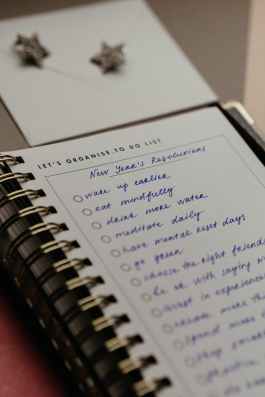 LET'S ORGANISE: TO DO LIST
New Year's Resolutions
wake up earlier
eat mindfully
drink more water
meditate daily
have mental reset days
go green
choose the right friends
be ok with saying
invest in experiences
create more
spend more
stop